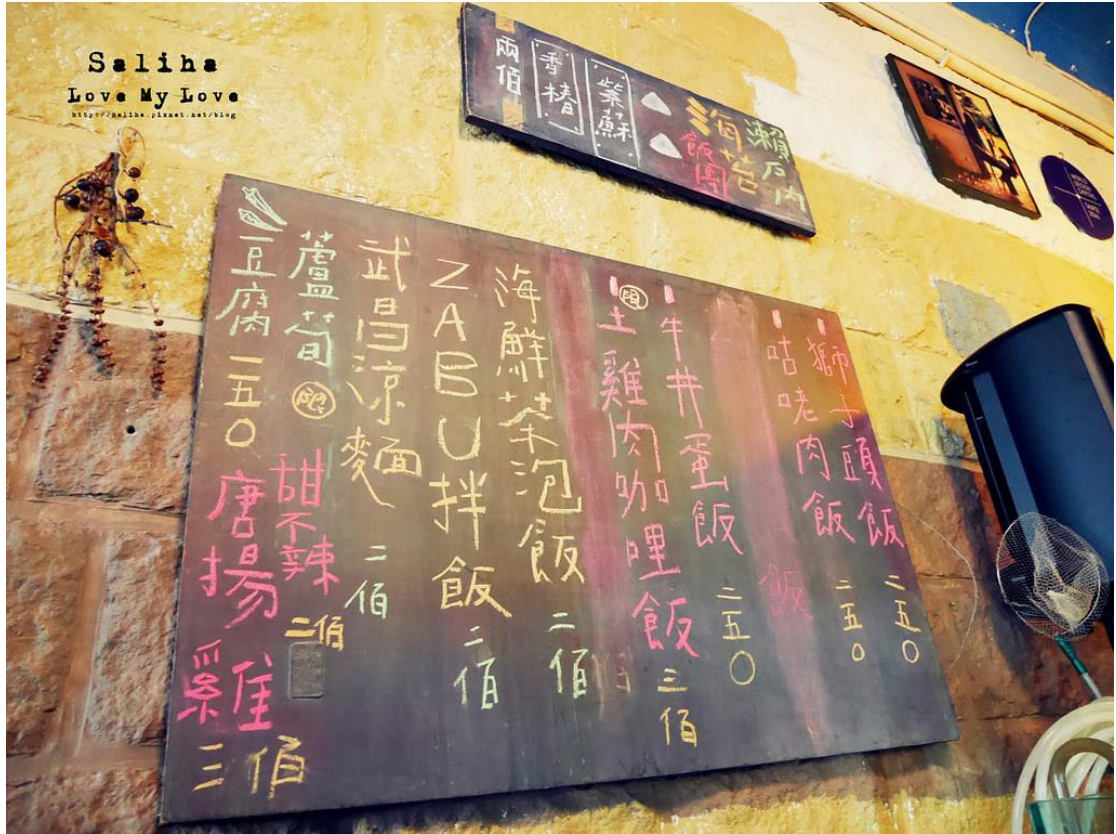 Saliha
Love My Love
http://saliha.pixnet.net/blog
瀨戶內
海苔
飯團
紫蘇
香椿
兩佰
獅子頭飯 二五0
咕咾肉飯 二五0
飯
牛丼蛋飯 二五0
限 土雞肉咖哩飯 三佰
海鮮茶泡飯 二佰
ZABU拌飯 二佰
武昌涼麵 二佰
蘆筍 限 甜不辣 二佰
豆腐 一五0 唐揚雞 三佰